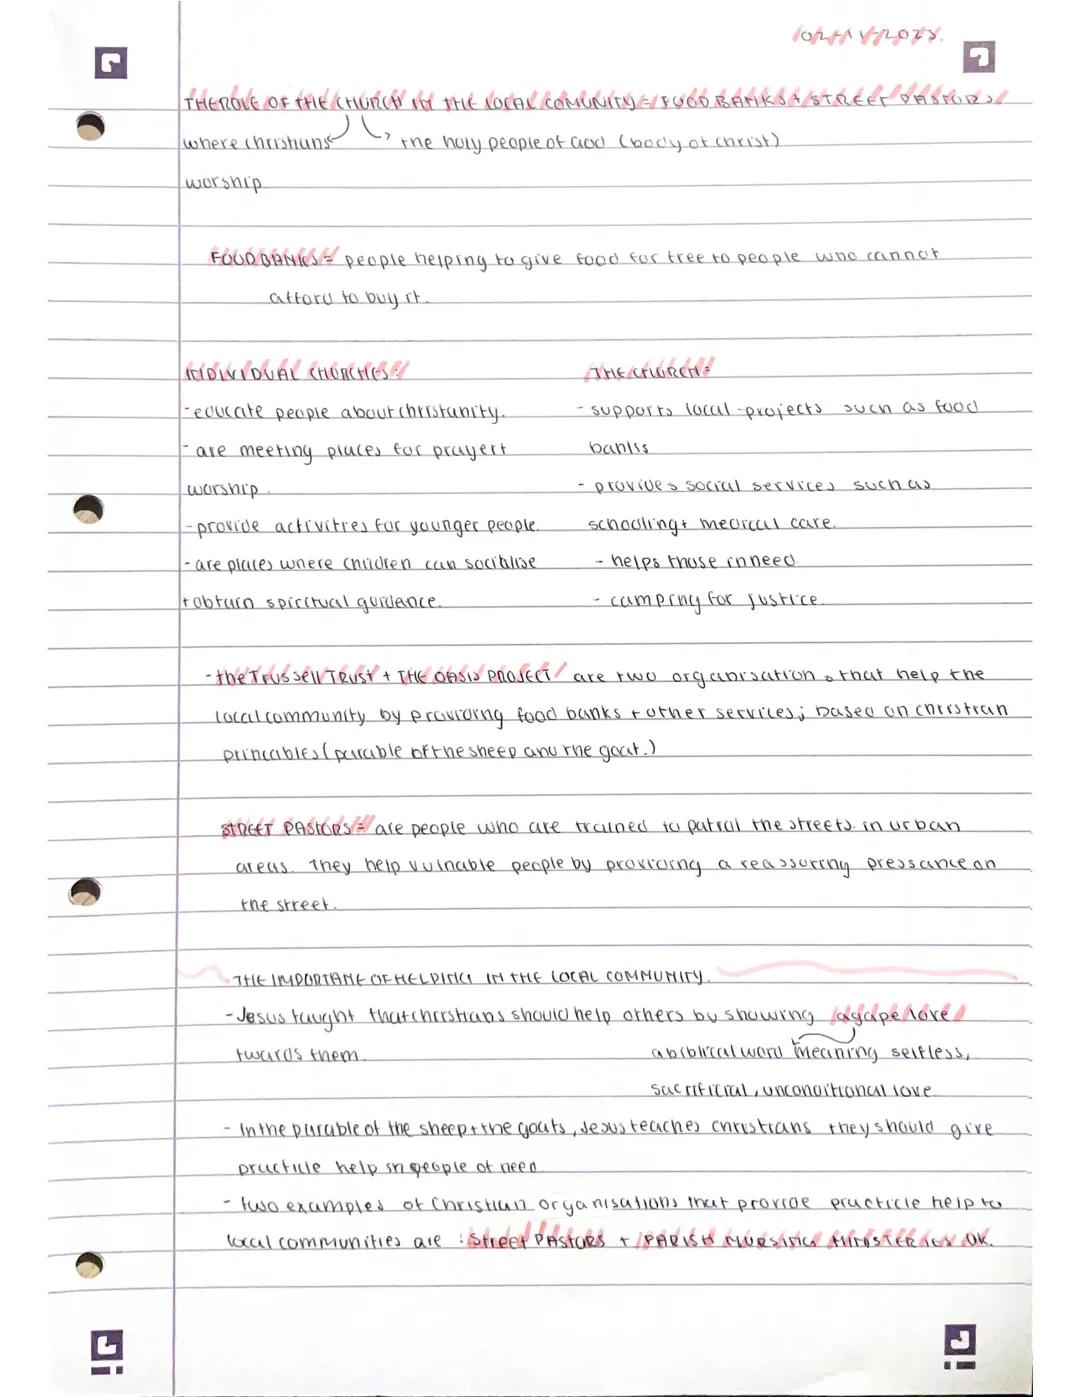 02-11-2023.
THE ROLE OF THE CHURCH IN THE LOCAL COMUNITY = FOOD BANKS + STREET PASTORS.
where christians the holy people of God (body of christ)
worship
FOOD BANKS = people helping to give food for free to people who cannot
afford to buy it.
INDIVIDUAL CHURCHES:
- educate people about christianity.
- are meeting places for prayer +
worship.
- provide activities for younger people.
- are places where children can socialise
+ obtain spiritual guidence.
THE CHURCH =
- supports local projects such as food
banks
- provides social services such as
schooling + medical care.
- helps those in need
- camping for justice.
- the Trussell Trust + THE OASIS PROJECT are two organisations that help the
local community by providing food banks + other services; based on christian
princables (parable of the sheep and the goat.)
STREET PASTORS = are people who are trained to patrol the streets in urban
areas. They help vulnable people by providing a reassuring pressance on
the street.
THE IMPORTANE OF HELPING IN THE LOCAL COMMUNITY.
- Jesus taught that christians should help others by showing agape love
twards them.
a biblical word meaning selfless,
sacrificial, unconditional love
- In the parable of the sheep + the goats, Jesus teaches christians they should give
practicle help in people of need
- two examples of Christian organisations that provide practicle help to
local communities are : Street PASTORS + PARISH NURSING MINISTERIES UK.